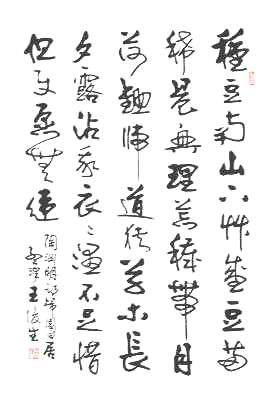 種豆南山下艸盛豆苗
稀晨興理荒穢帶月
荷鋤歸道狹草木長
夕露沾我衣衣不足惜
但使願無違
陶淵明詩歸園田居
王生